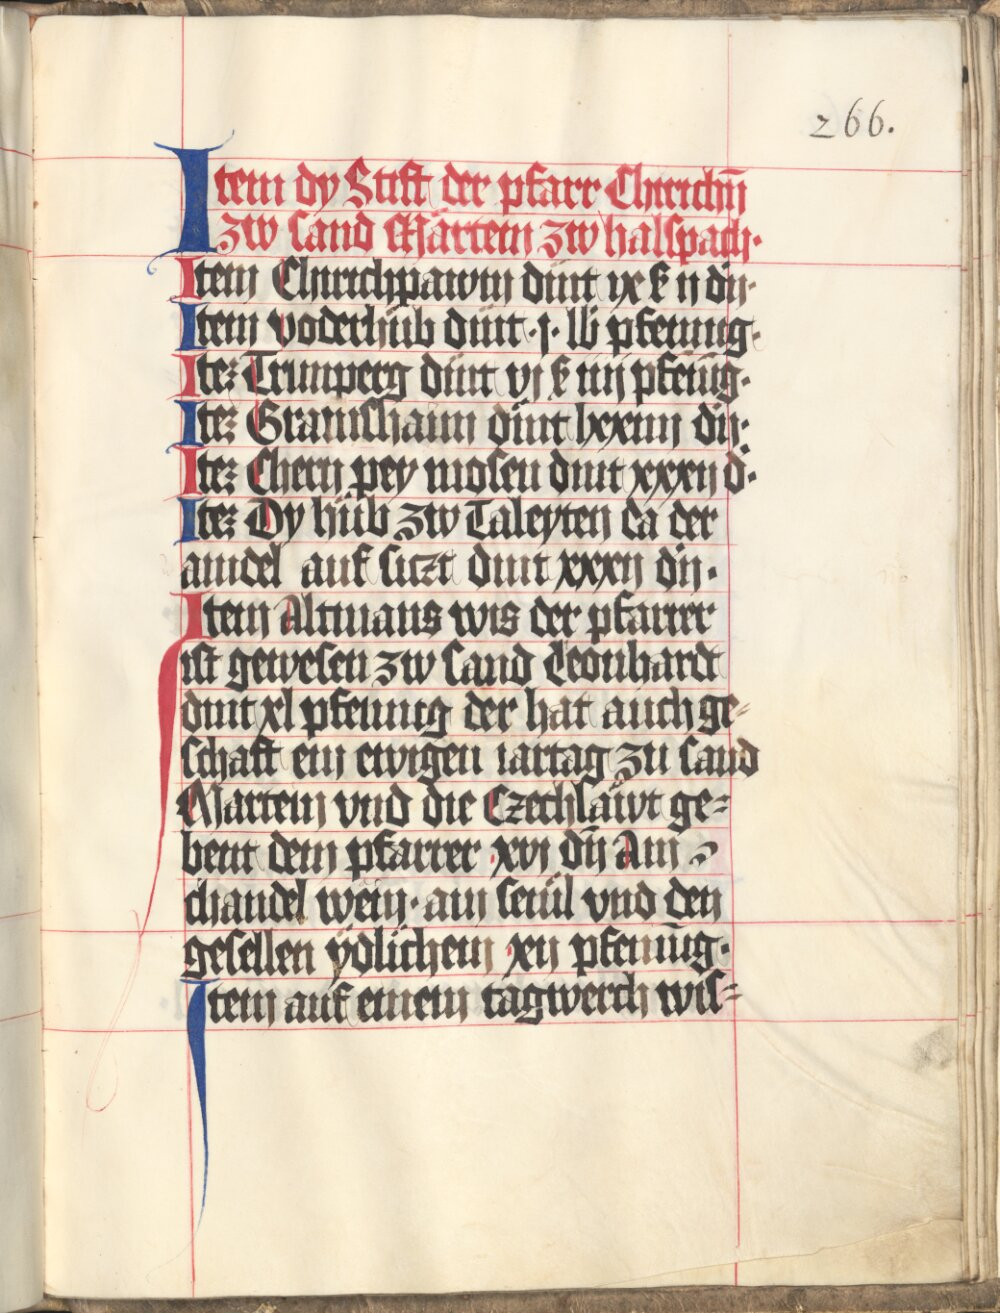 266.
Item dy Stift der pfarr Chirichn̄
zw sand Märtein zw halspach·
Item Chirichpawm dint ix ß ij dn̄·
Item voderhüb dint ·j· lb pfenning·
Itez Trunperg dint vj ß iiij pfen̄ig·
Itez Granschaim dint lxxiiij dn̄·
Itez Chern pey mosen dint xxxij d·
Itez Dy hüb zw Taleyten da der
amdel auf siczt dint xxxij dn̄·
Item Altmans wis der pfarrer
ist gewesen zw sand Leonhardt
dint xl pfenning der hat auch ge⸗
schaft ein ewigen iartag zu sand
Martein vnd die Czechläwt ge⸗
bent dem pfarrer xvj dn̄ Ain
chandel wein· ain seml vnd den
gesellen ydlichem xij pfen̄ing·
Item auf einem tagwerch wis⸗